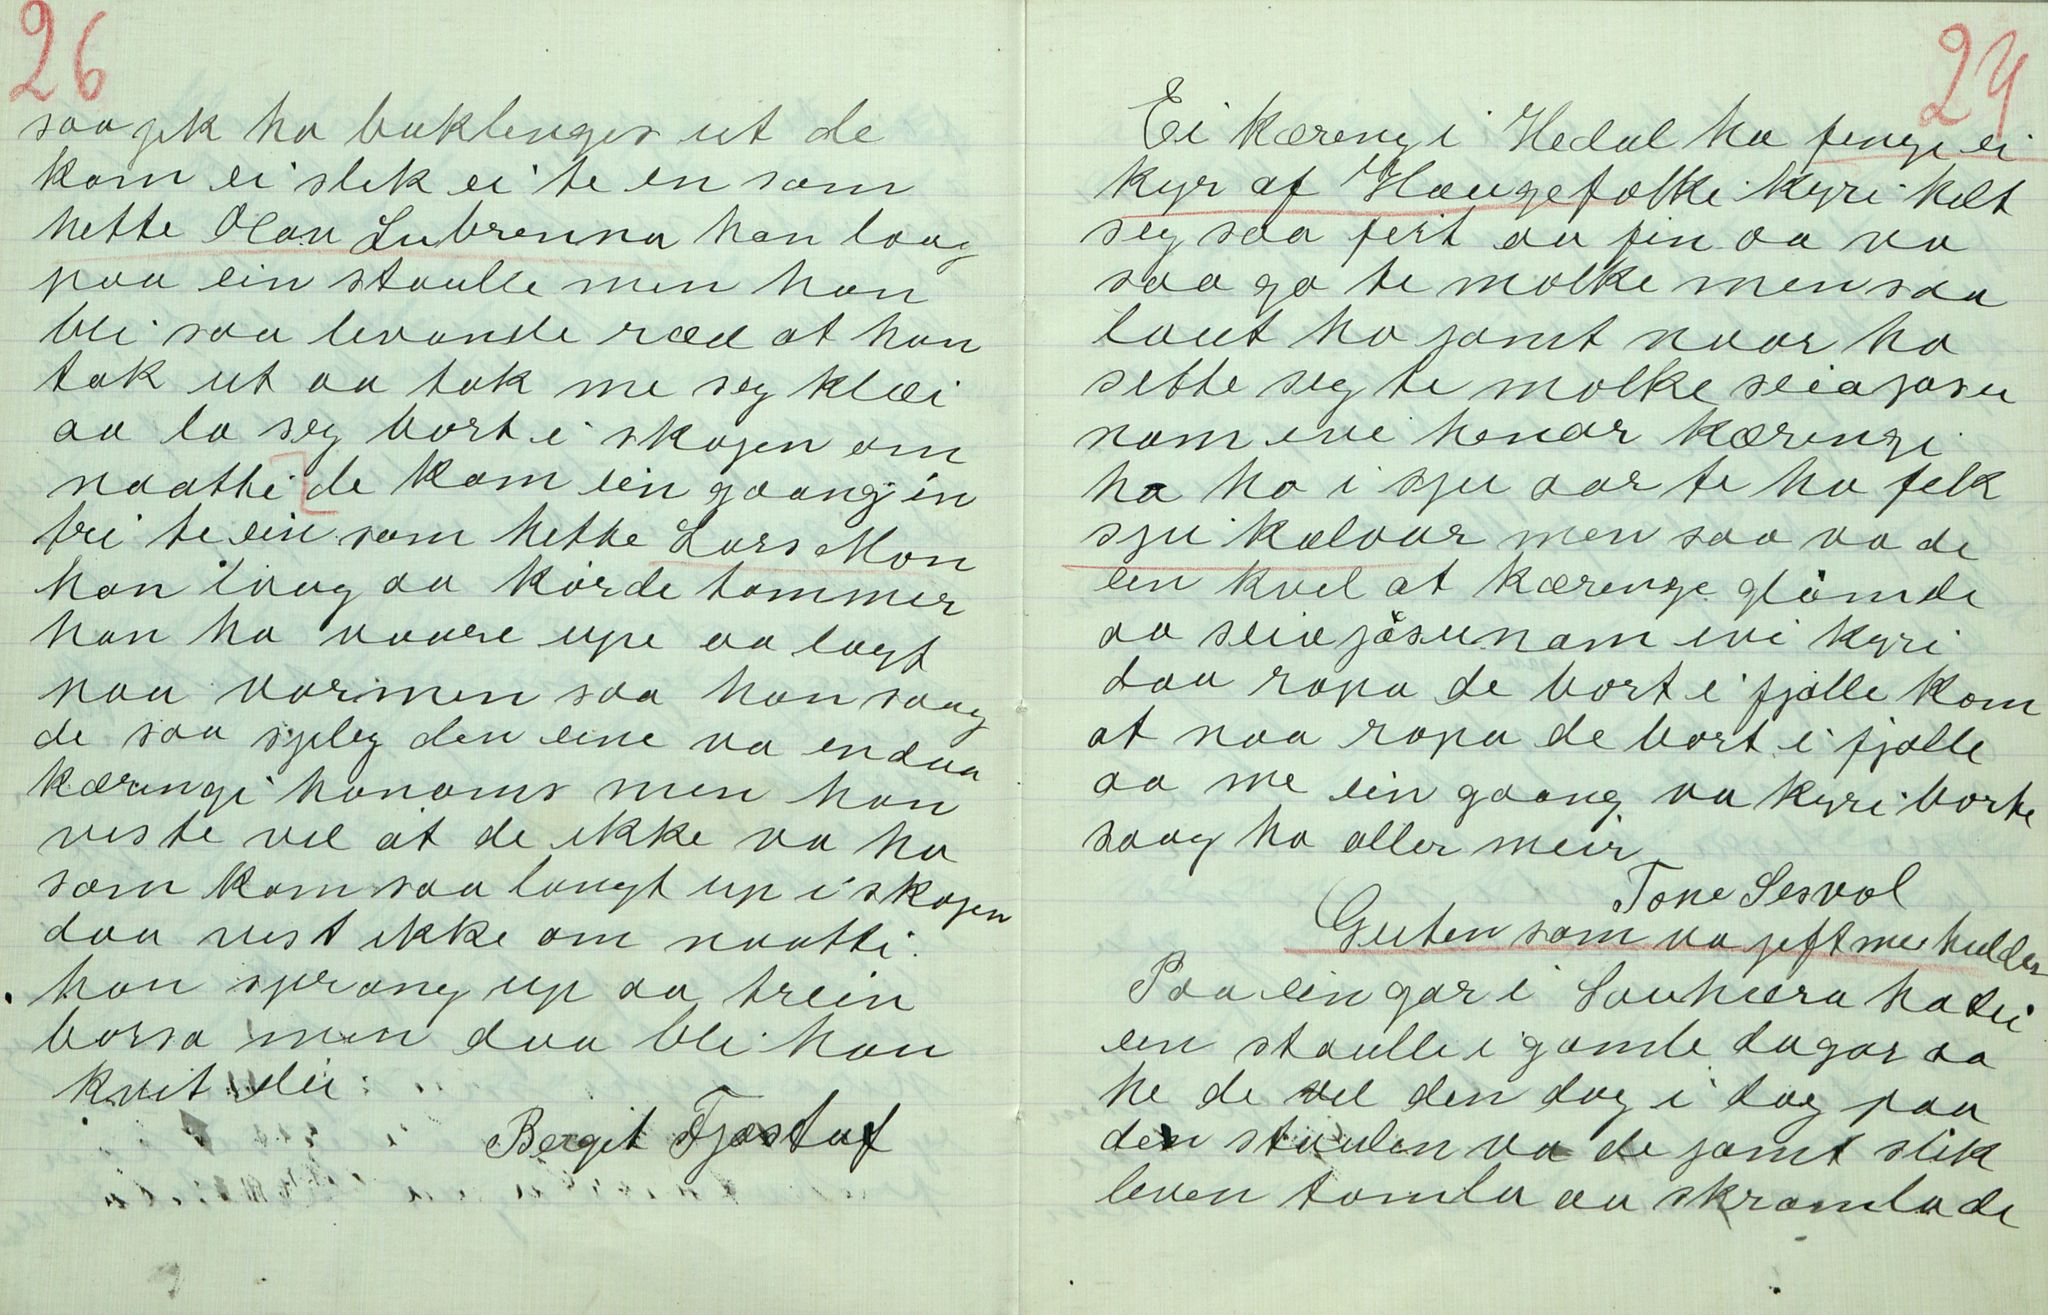 26
saa gik ho baklenges ut de
kom ei slik ei te en som
hette Olav Lubrenna han laag
paa ein staulle men han
bli saa levande ræd at han
tok ut aa tok me seg klæi
aa la seg bort i skogen om
naatti de kom ein gaang in
tri te ein som hette Lars Mon
han laag aa kørde tømmer
han ha vaare upe aa lagt
paa varmen saa han saag
de saa sjleg den eine va endaa
kæringi hanoms men han
viste vel at de ikke va ho
som kom saa langt up i skogen
daa vist ikke om naatti.
han sprang up aa trein
børsa men daa bli han
kvit dei
Bergit Fjøstuf
27
Ei kæreng i Hedal ha fengi ei
kyr af Haugefolke kyri helt
seg saa feit aa fin aa va
saa go te molke men saa
laut ho jamt naar ho
sette seg te molke seia jøsu
nam ivi henar kæringi
ha ho i sju aar te ho fek
sju kalvar men saa va de
ein kvel at kærenge glømde
aa seia jøsunam ivi kyri
daa ropa de bort i fjølle kom
at naa ropa de bort i fjølle
aa me ein gaang va kyri borte
saag ho aller meir
Tone Sesvol
Guten som va jeft mee hulder
Paa ein gar i Sauhæra ha dei
ein staulle i gamle dagar aa
he de vel den dag i dag paa
den staulen va de jamt slik
leven tamla aa skramla de